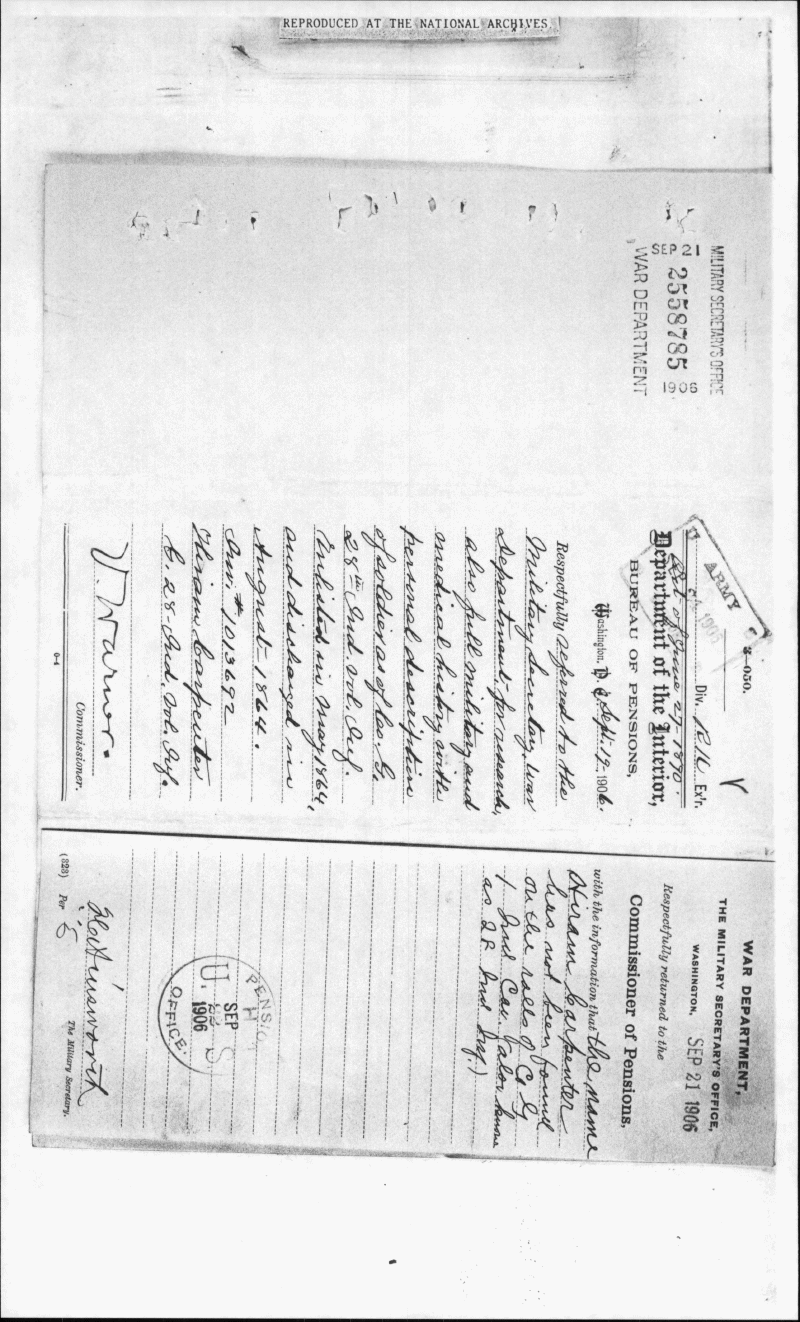 REPRODUCED AT THE NATIONAL ARCHIVES
MILITARY SECRETARY'S OFFICE
SEP 21 2558785 1906
WAR DEPARTMENT
ARMY
3-050.
Div. Ex'r.
Act of June 27-1890.
Department of the Interior,
BUREAU OF PENSIONS,
Washington, D. C., Sept. 19, 1906.
Respectfully referred to the
Military Secretary, War
Department, for research,
also full military and
medical history with
personal description
of soldier as of Co. G.
28th Ind. Vol. Inf.
Enlisted in May 1864,
and discharged in
August 1864.
Inv. # 1013692
Hiram Carpenter
G. 28- Ind. Vol. Inf.
V. Warner.
Commissioner.
6-4
WAR DEPARTMENT,
THE MILITARY SECRETARY'S OFFICE,
WASHINGTON, SEP 21 1906
Respectfully returned to the
Commissioner of Pensions,
with the information that the name
Hiram Carpenter
has not been found
on the rolls of Co G
1 Ind Cav. (also known
as 28 Ind Inf.)
PENSION
U. S.
SEP 22
1906
OFFICE.
F C Ainsworth
The Military Secretary.
(323) Per